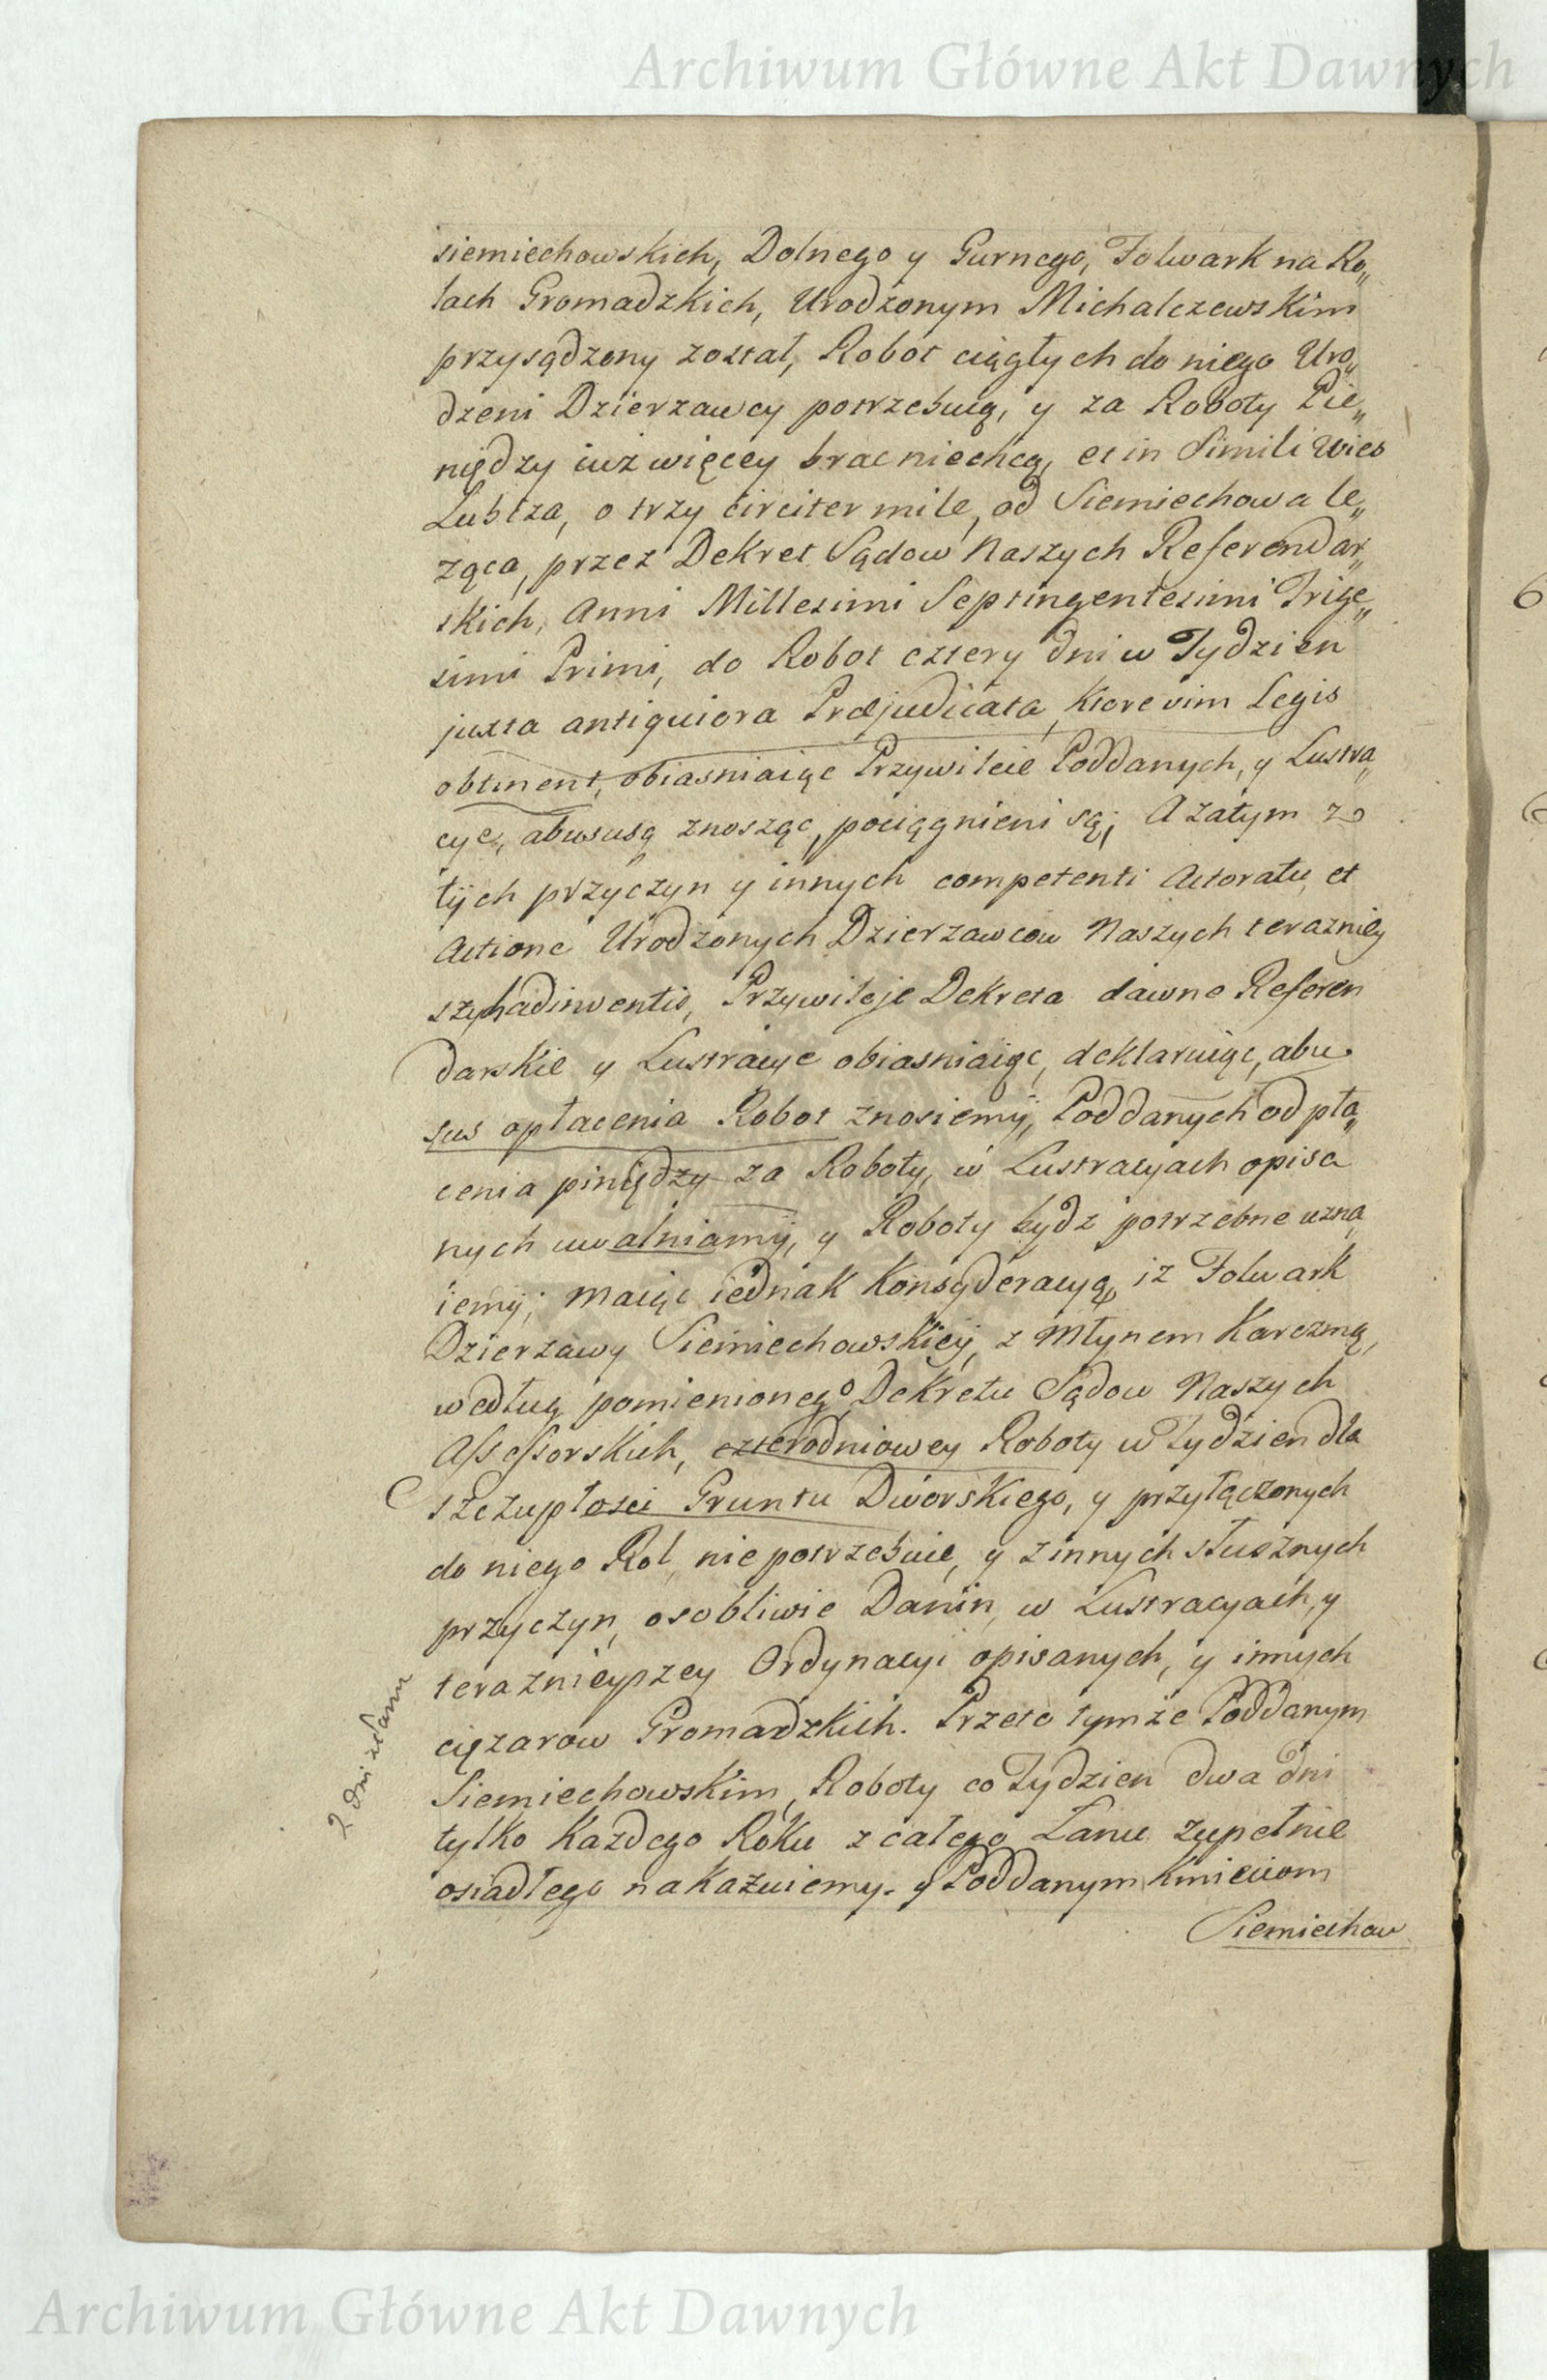 Archiwum Główne Akt Dawnych
siemiechowskich, Dolnego y Gurnego, Folwark na Ro„
lach Gromadzkich, Urodzonym Michalczewskim
przysądzony został, Robot ciągłych do niego Uro„
dzeni Dzierzawcy potrzebuią, y za Roboty Pie„
niędzy iuż więcey brac niechcą, et in Simili Wies
Lubcza, o trzy circiter mile, od Siemiechowa le„
ząca, przez Dekret Sądow Naszych Referendar„
skich, Anni Millesimi Septingentesimi Trige„
simi Primi, do Robot cztery dni w Tydzien
juxta antiquiora Præjudicata, ktore vim Legis
obtinent, obiasniaiąc Przywileie Poddanych, y Lustra„
cye, abususą znosząc, pociągnieni są; A zatym z
tych przyczyn y innych competenti Actoratu, et
Actione Urodzonych Dzierzawcow Naszych terazniey
szych adinventis, Przywileje Dekreta dawne Referen
darskie y Lustracye obiasniaiąc, deklaruiąc, abu
sus opłacenia Robot znosiemy, Poddanych od pła„
cenia piniędzy za Roboty, w Lustracyach opisa
nych uwalniamy, y Roboty bydz potrzebne uzna„
iemy; maiąc iednak Konsyderacyą, iz Folwark
Dzierzawy Siemiechowskiey, z Młynem Karczmą,
według pomienionego Dekretu Sądow Naszych
Assessorskich, czterodniowey Roboty w Tydzien dla
szczupłosci Gruntu Dworskiego, y przyłączonych
do niego Rol, nie potrzebuie, y z innych słusznych
przyczyn, osobliwie Danin, w Lustracyach, y
teraznieyszey Ordynacyi opisanych, y innych
ciężarow Gromadzkich. Przeto tymże Poddanym
Siemiechowskim, Roboty co Tydzien dwa dni
tylko Kazdego Roku z całego Łanu zupełnie
osiadłego nakazuiemy. y Poddanym Kmieciom
Siemiechow
2 dni z Łanu
Archiwum Główne Akt Dawnych